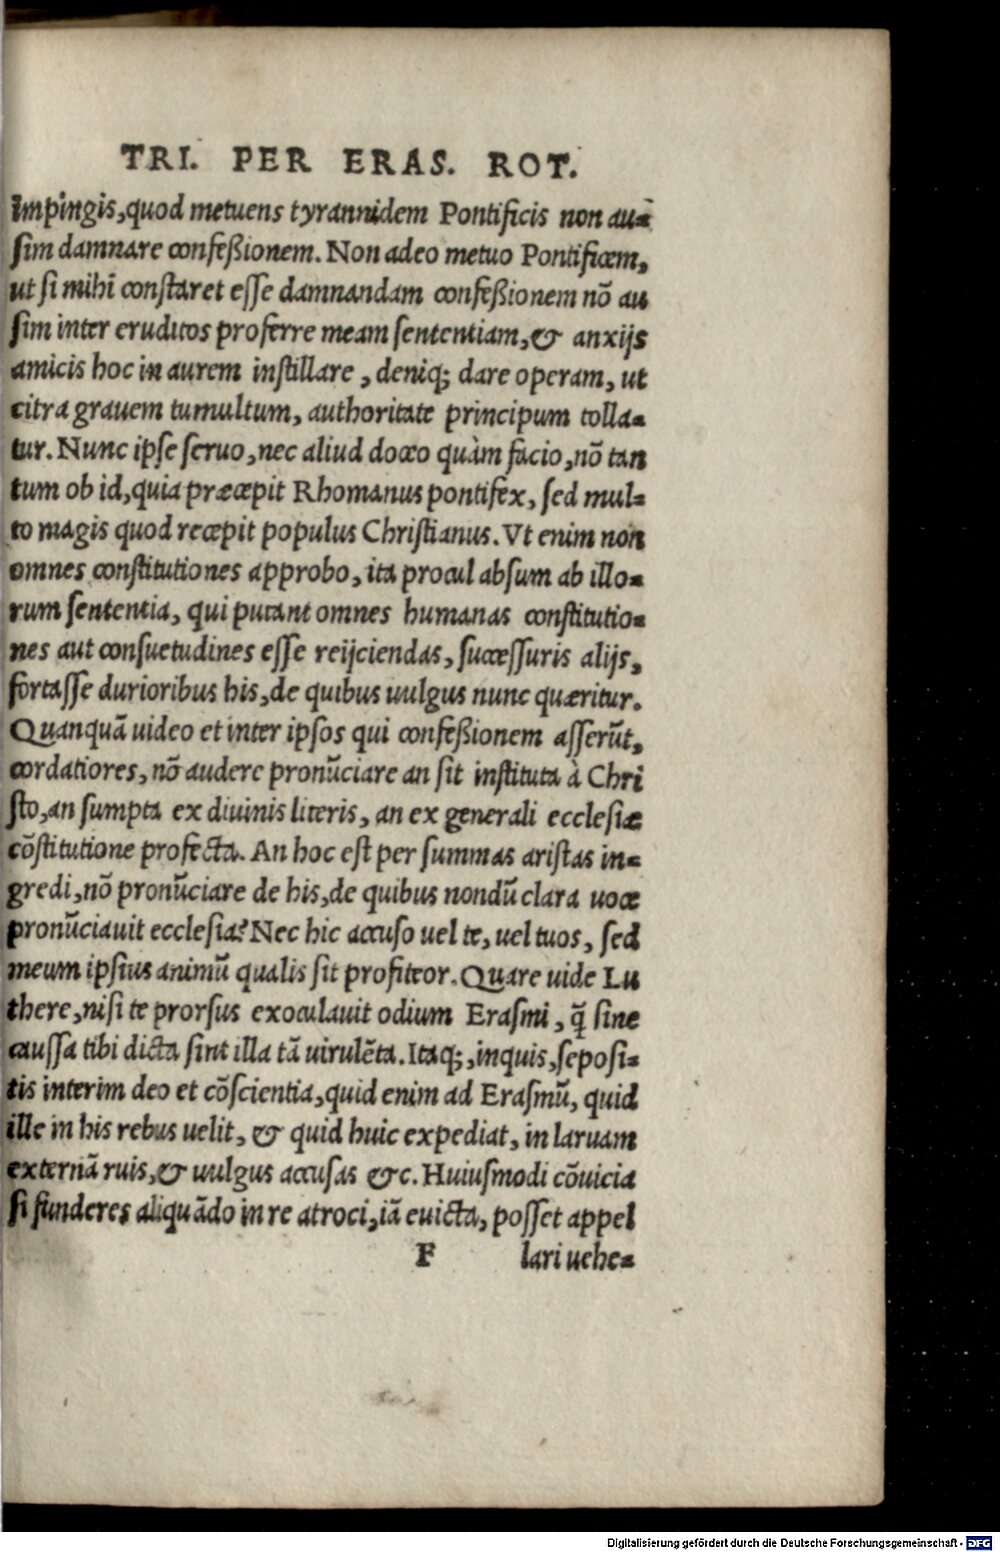 TRI. PER ERAS. ROT.
impingis, quod metuens tyrannidem Pontificis non au-
sim damnare confeßionem. Non adeo metuo Pontificem,
ut si mihi constaret esse damnandam confeßionem nō au
sim inter eruditos proferre meam sententiam, & anxijs
amicis hoc in aurem instillare, deniq; dare operam, ut
citra grauem tumultum, authoritate principum tolla-
tur. Nunc ipse seruo, nec aliud doceo quàm facio, nō tan
tum ob id, quia præcepit Rhomanus pontifex, sed mul-
to magis quod recepit populus Christianus. Vt enim non
omnes constitutiones approbo, ita procul absum ab illo-
rum sententia, qui putant omnes humanas constitutio-
nes aut consuetudines esse reijciendas, successuris alijs,
fortasse durioribus his, de quibus uulgus nunc quæritur.
Quanquā uideo et inter ipsos qui confeßionem asserūt,
cordatiores, nō audere pronūciare an sit instituta à Chri
sto, an sumpta ex diuinis literis, an ex generali ecclesiæ
cōstitutione profecta. An hoc est per summas aristas in-
gredi, nō pronūciare de his, de quibus nondū clara uoce
pronūciauit ecclesia? Nec hic accuso uel te, uel tuos, sed
meum ipsius animū qualis sit profiteor. Quare uide Lu
there, nisi te prorsus exoculauit odium Erasmi, q̃ sine
caussa tibi dicta sint illa tā uirulēta. Itaq;, inquis, seposi-
tis interim deo et cōscientia, quid enim ad Erasmū, quid
ille in his rebus uelit, & quid huic expediat, in laruam
externā ruis, & uulgus accusas &c. Huiusmodi cōuicia
si funderes aliquādo in re atroci, iā euicta, posset appel
F lari uehe-
Digitalisierung gefördert durch die Deutsche Forschungsgemeinschaft - DFG